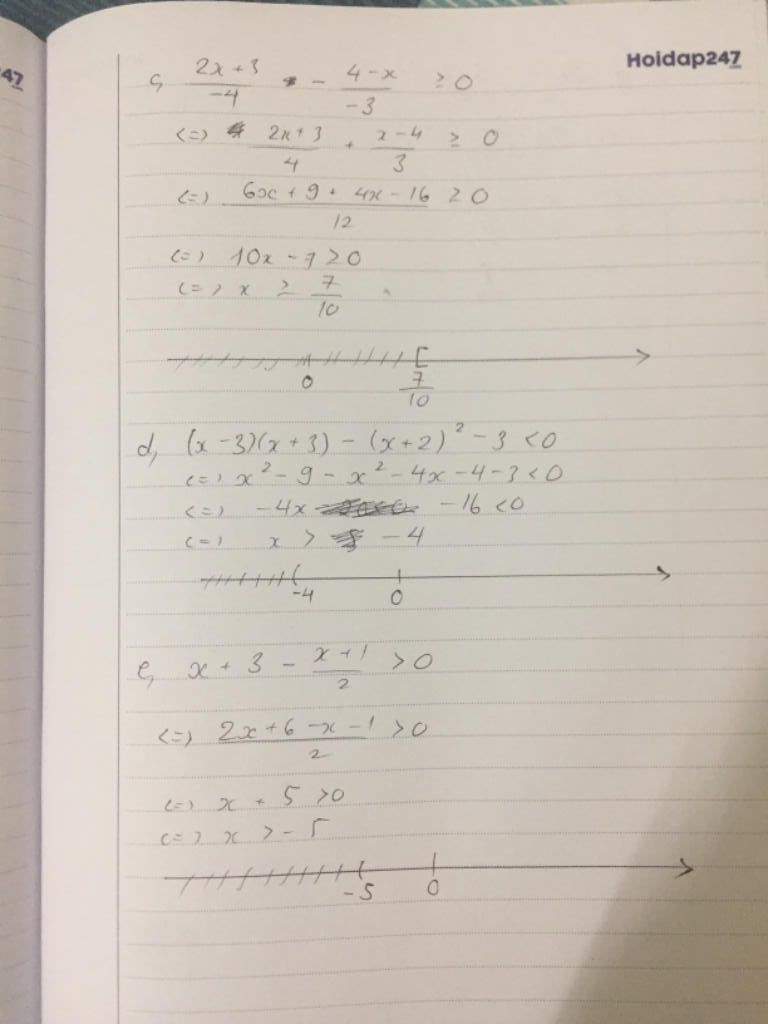 47
Hoidap247
c, (2x+3)/(-4) - (4-x)/(-3) ≥ 0
<=> (2x+3)/4 + (x-4)/3 ≥ 0
<=> (6x+9+4x-16)/12 ≥ 0
<=> 10x-7 ≥ 0
<=> x ≥ 7/10
0 [ 7/10
d, (x-3)(x+3) - (x+2)² - 3 < 0
<=> x² - 9 - x² - 4x - 4 - 3 < 0
<=> -4x -16 < 0
<=> x > -4
( -4 0
e, x + 3 - (x+1)/2 > 0
<=> (2x+6-x-1)/2 > 0
<=> x + 5 > 0
<=> x > -5
( -5 0